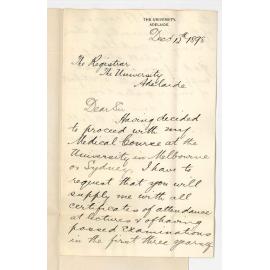 THE UNIVERSITY,
ADELAIDE.
Dec 13th 1898
The Registrar
The University
Adelaide
Dear Sir
Having decided
to proceed with my
Medical Course at the
University in Melbourne
or Sydney, I have to
request that you will
supply me with all
certificates of attendance
at lectures & of having
passed Examinations
in the first three years